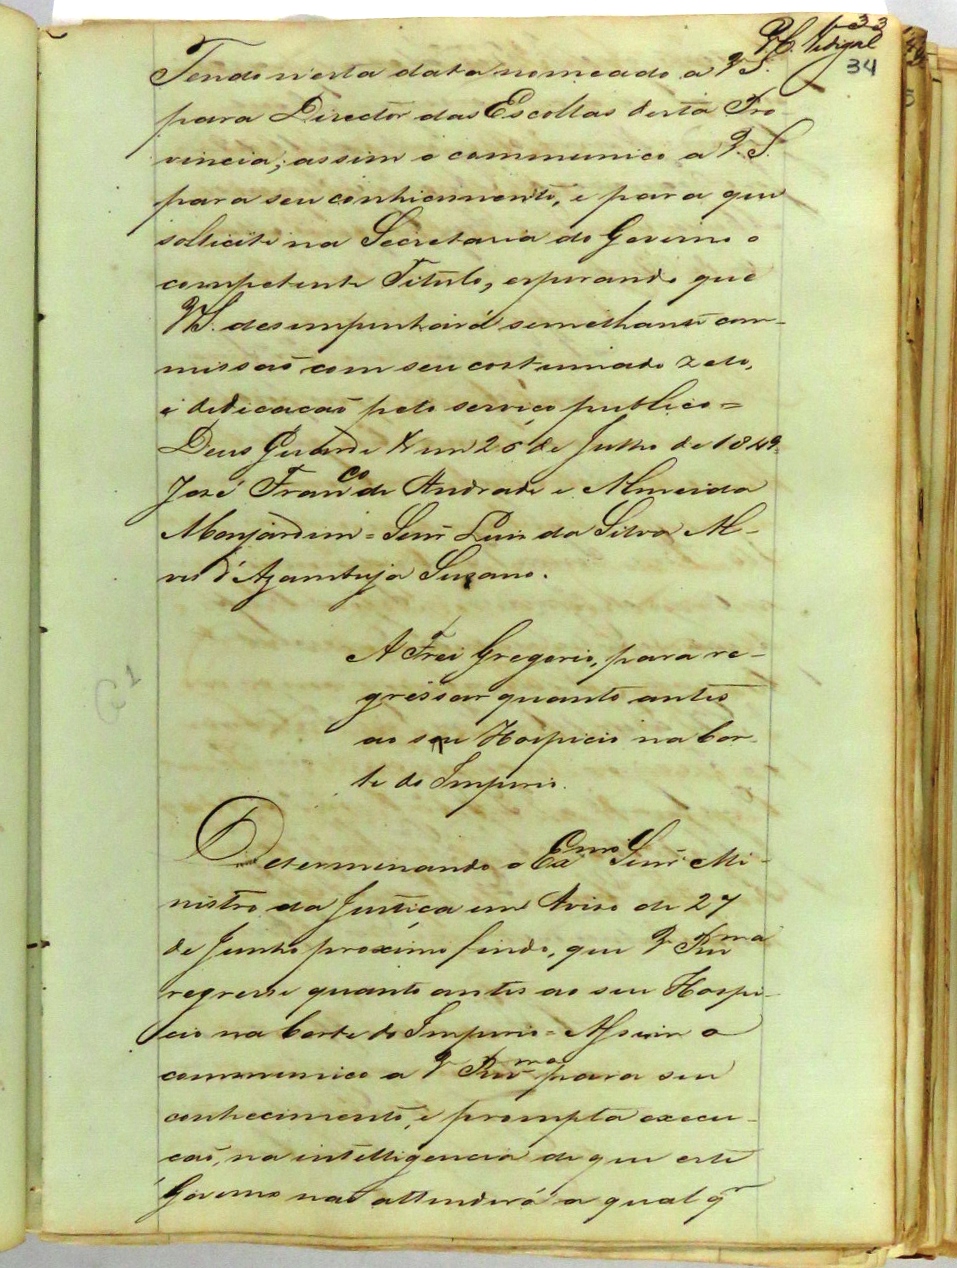 33
34
Tendo n'esta data nomeado a V S.
para Director das Escollas desta Pro
vincia; assim o communico a V. S.
para seu conhicimento, e para que
sollicite na Secretaria do Governo o
competente Titulo, esperando que
V S. desimpenhará semelhante com-
missaõ com seu costumado zelo,
e dedicacaõ pelo serviço publico =
Deos Guarde V em 26 de Julho de 1849.
José Fran.co de Andrade e Almeida
Monjardim = Senr Luis da Silva Al-
ves d'Azambuja Suzano.
A Frei Gregorio, para re-
gressar quanto antes
ao seu Hospicio na Cor-
te do Imperio.
Determinando o Exmo Senr Mi-
nistro da Justiça em Aviso de 27
de Junho proximo findo, que V Rma
regresse quanto antes ao seu Hospi-
cio na Corte do Imperio = Assim o
communico a V Rma para seu
conhecimento, e prompta execu-
caõ, na intelligencia de que este
Governo naõ attenderá a qualqr